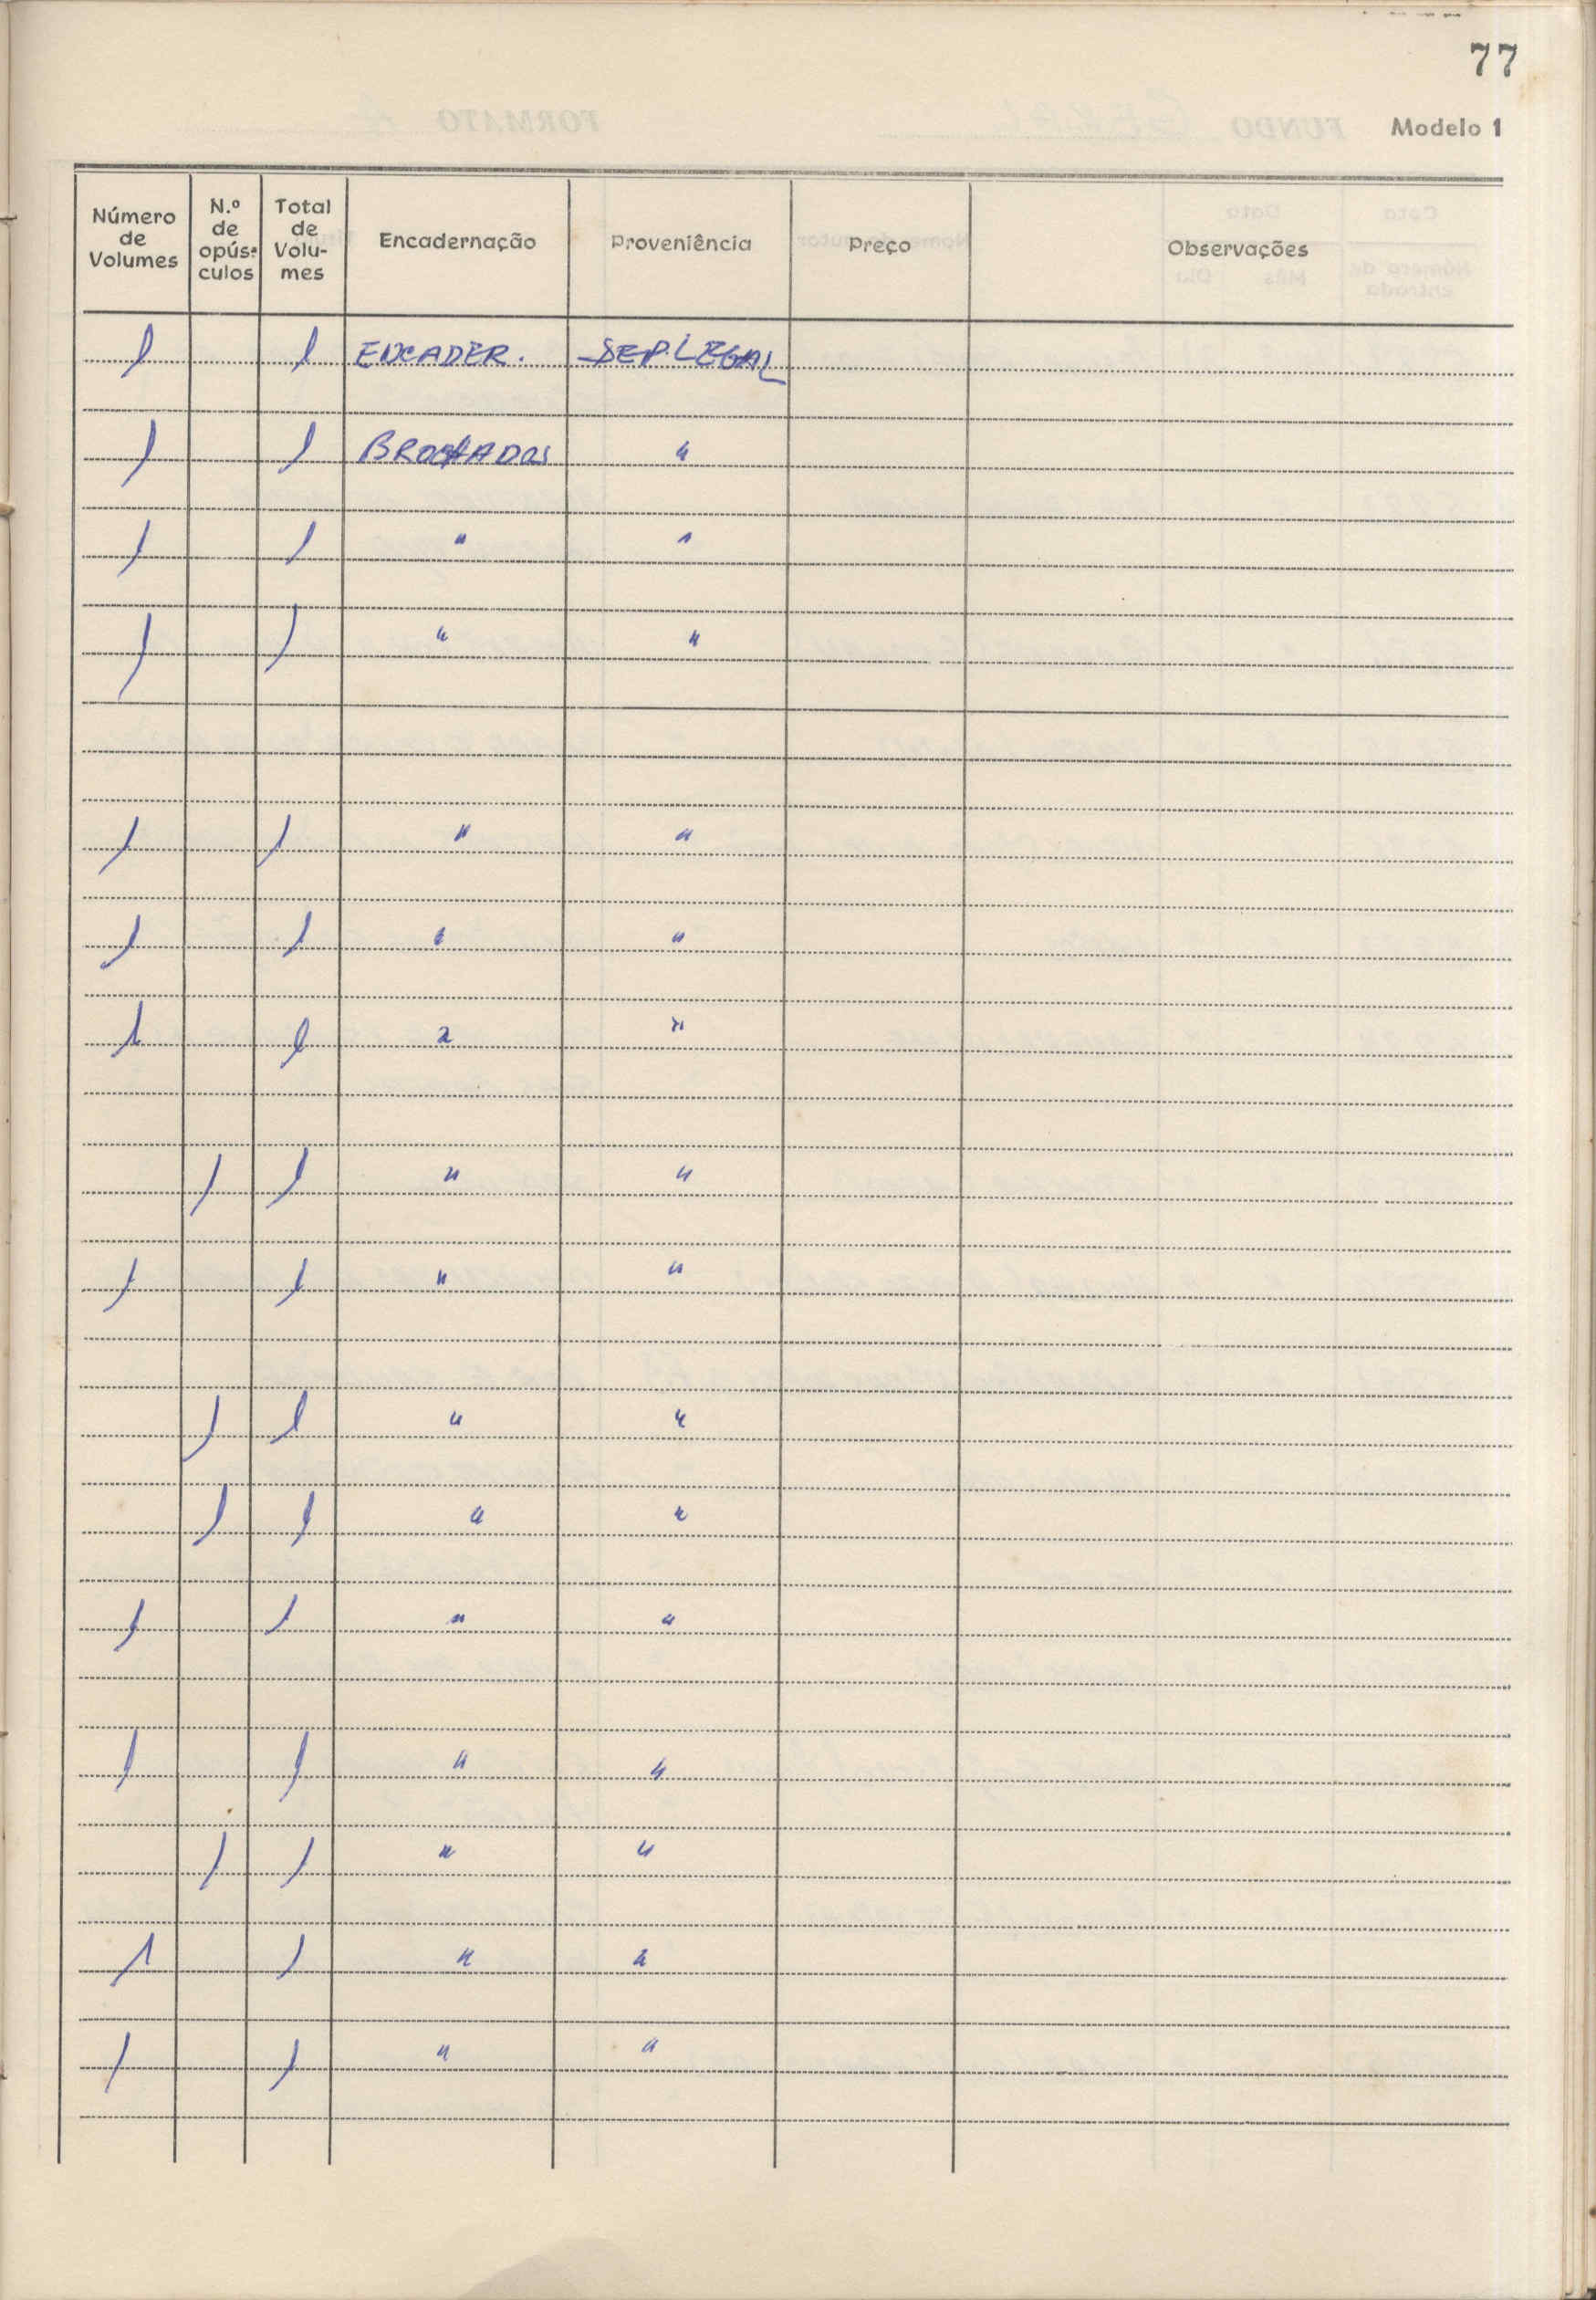 77
Modelo 1
Número de Volumes | N.º de opús-culos | Total de Volu-mes | Encadernação | Proveniência | Preço | Observações
1 | | 1 | ENCADER. | DEP. LEGAL
1 | | 1 | BROCHADOS | "
1 | | 1 | " | "
1 | | 1 | " | "
1 | | 1 | " | "
1 | | 1 | " | "
1 | | 1 | " | "
| 1 | 1 | " | "
1 | | 1 | " | "
| 1 | 1 | " | "
| 1 | 1 | " | "
1 | | 1 | " | "
1 | | 1 | " | "
| 1 | 1 | " | "
1 | | 1 | " | "
1 | | 1 | " | "